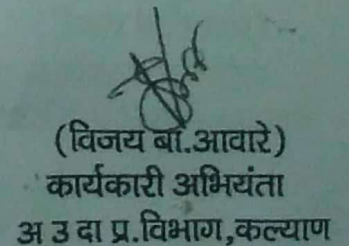 (विजय बा.आवारे)
कार्यकारी अभियंता
अ उ दा प्र.विभाग,कल्याण